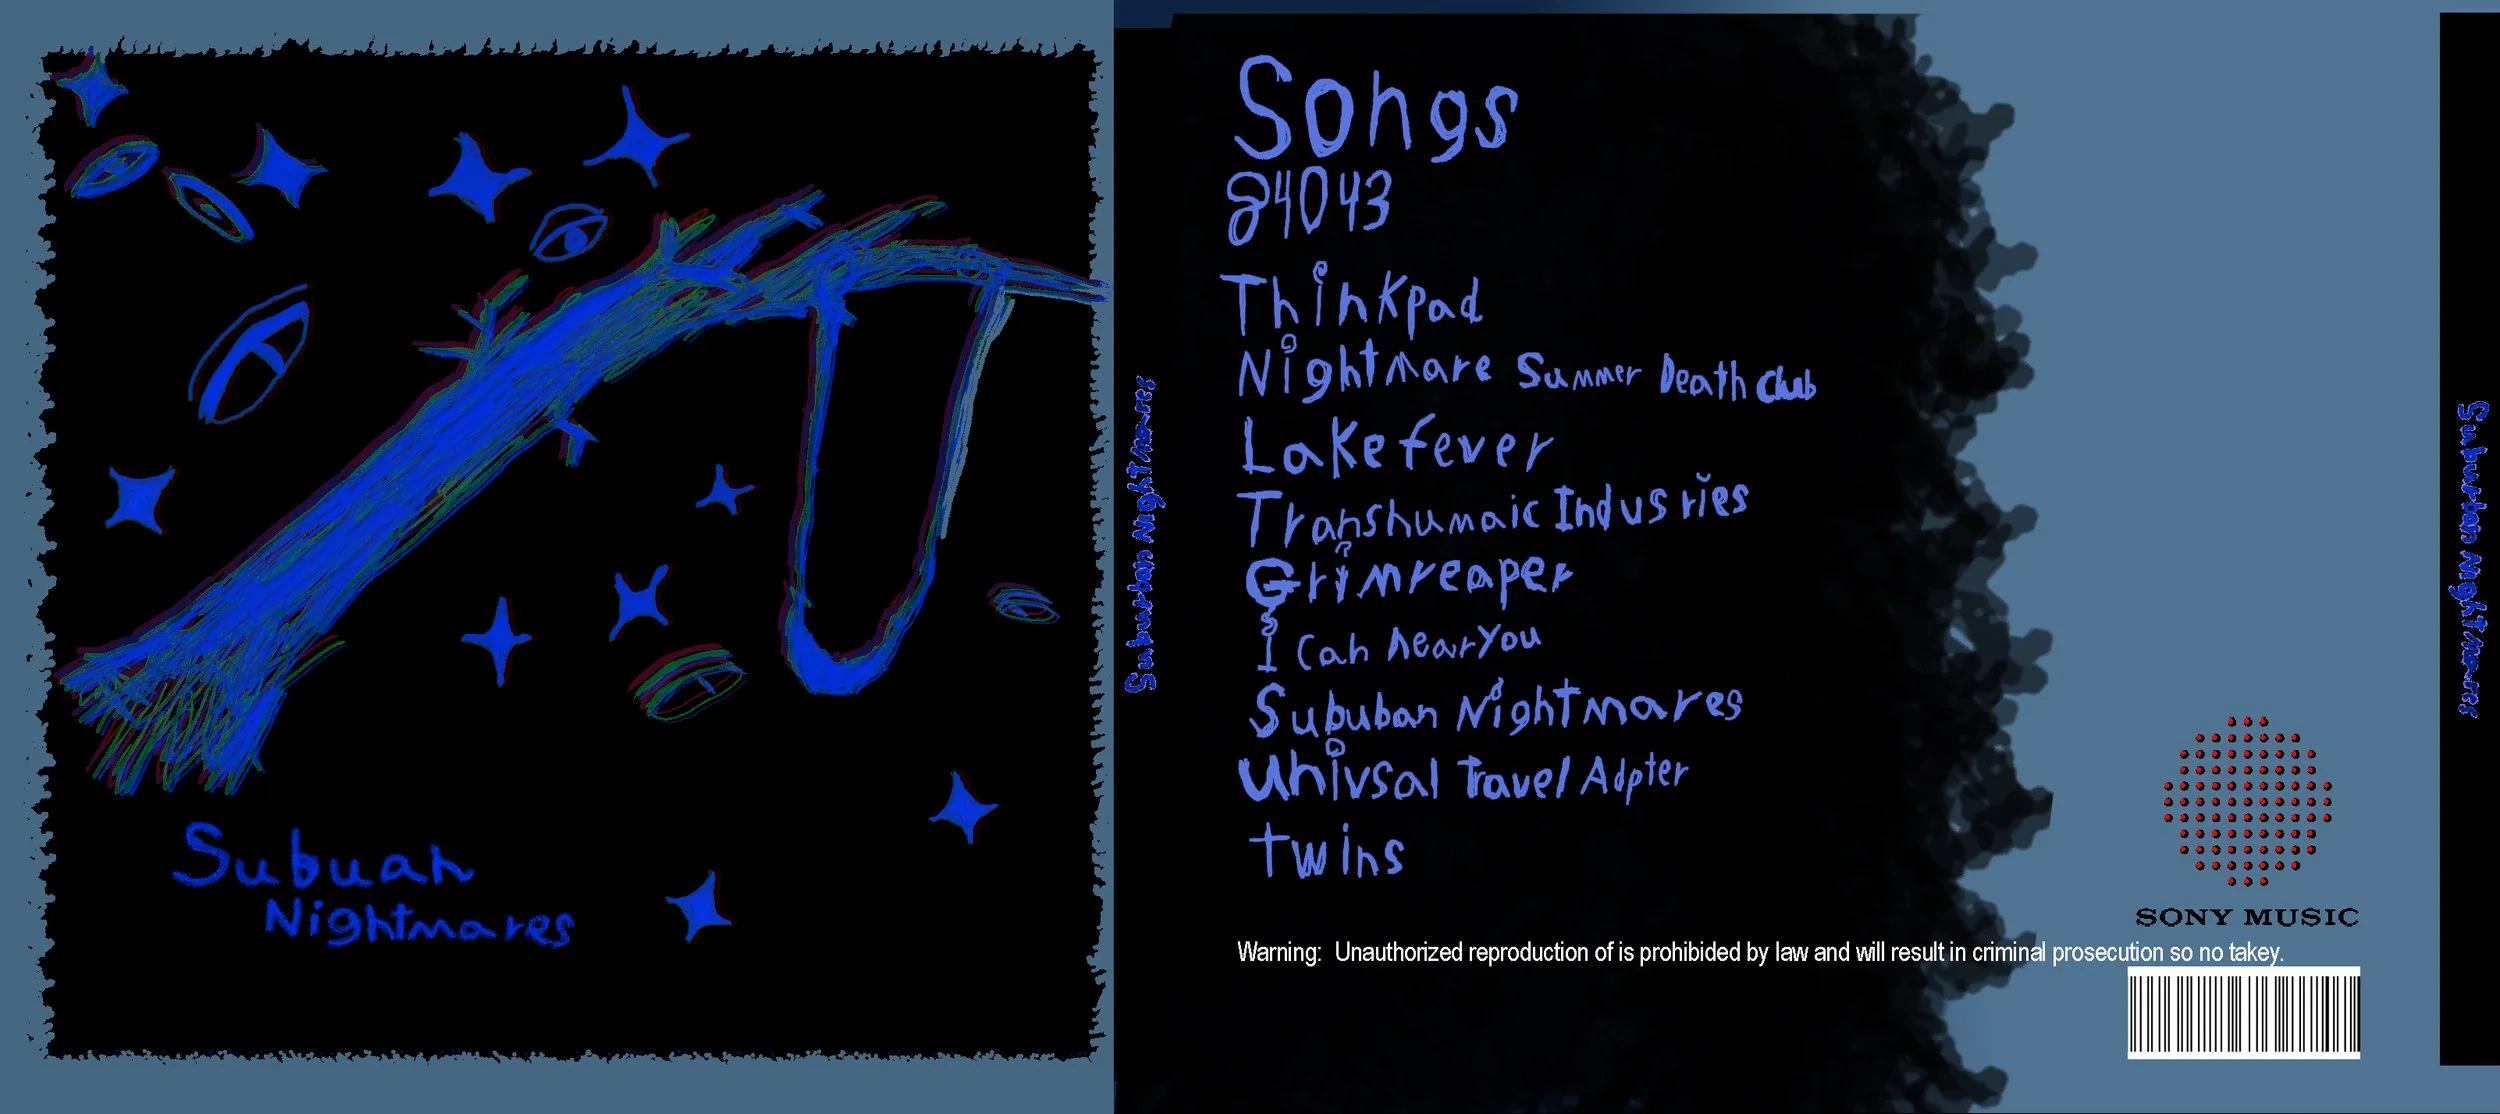 Subuan
Nightmares
Suburban Nightmares
Songs
84043
Thinkpad
Nightmare Summer Death Club
Lake fever
Transhumaic Indusries
Grimreaper
I Can hear You
Sububan Nightmares
Univsal Travel Adpter
twins
SONY MUSIC
Warning: Unauthorized reproduction of is prohibited by law and will result in criminal prosecution so no takey.
Suburban Nightmares